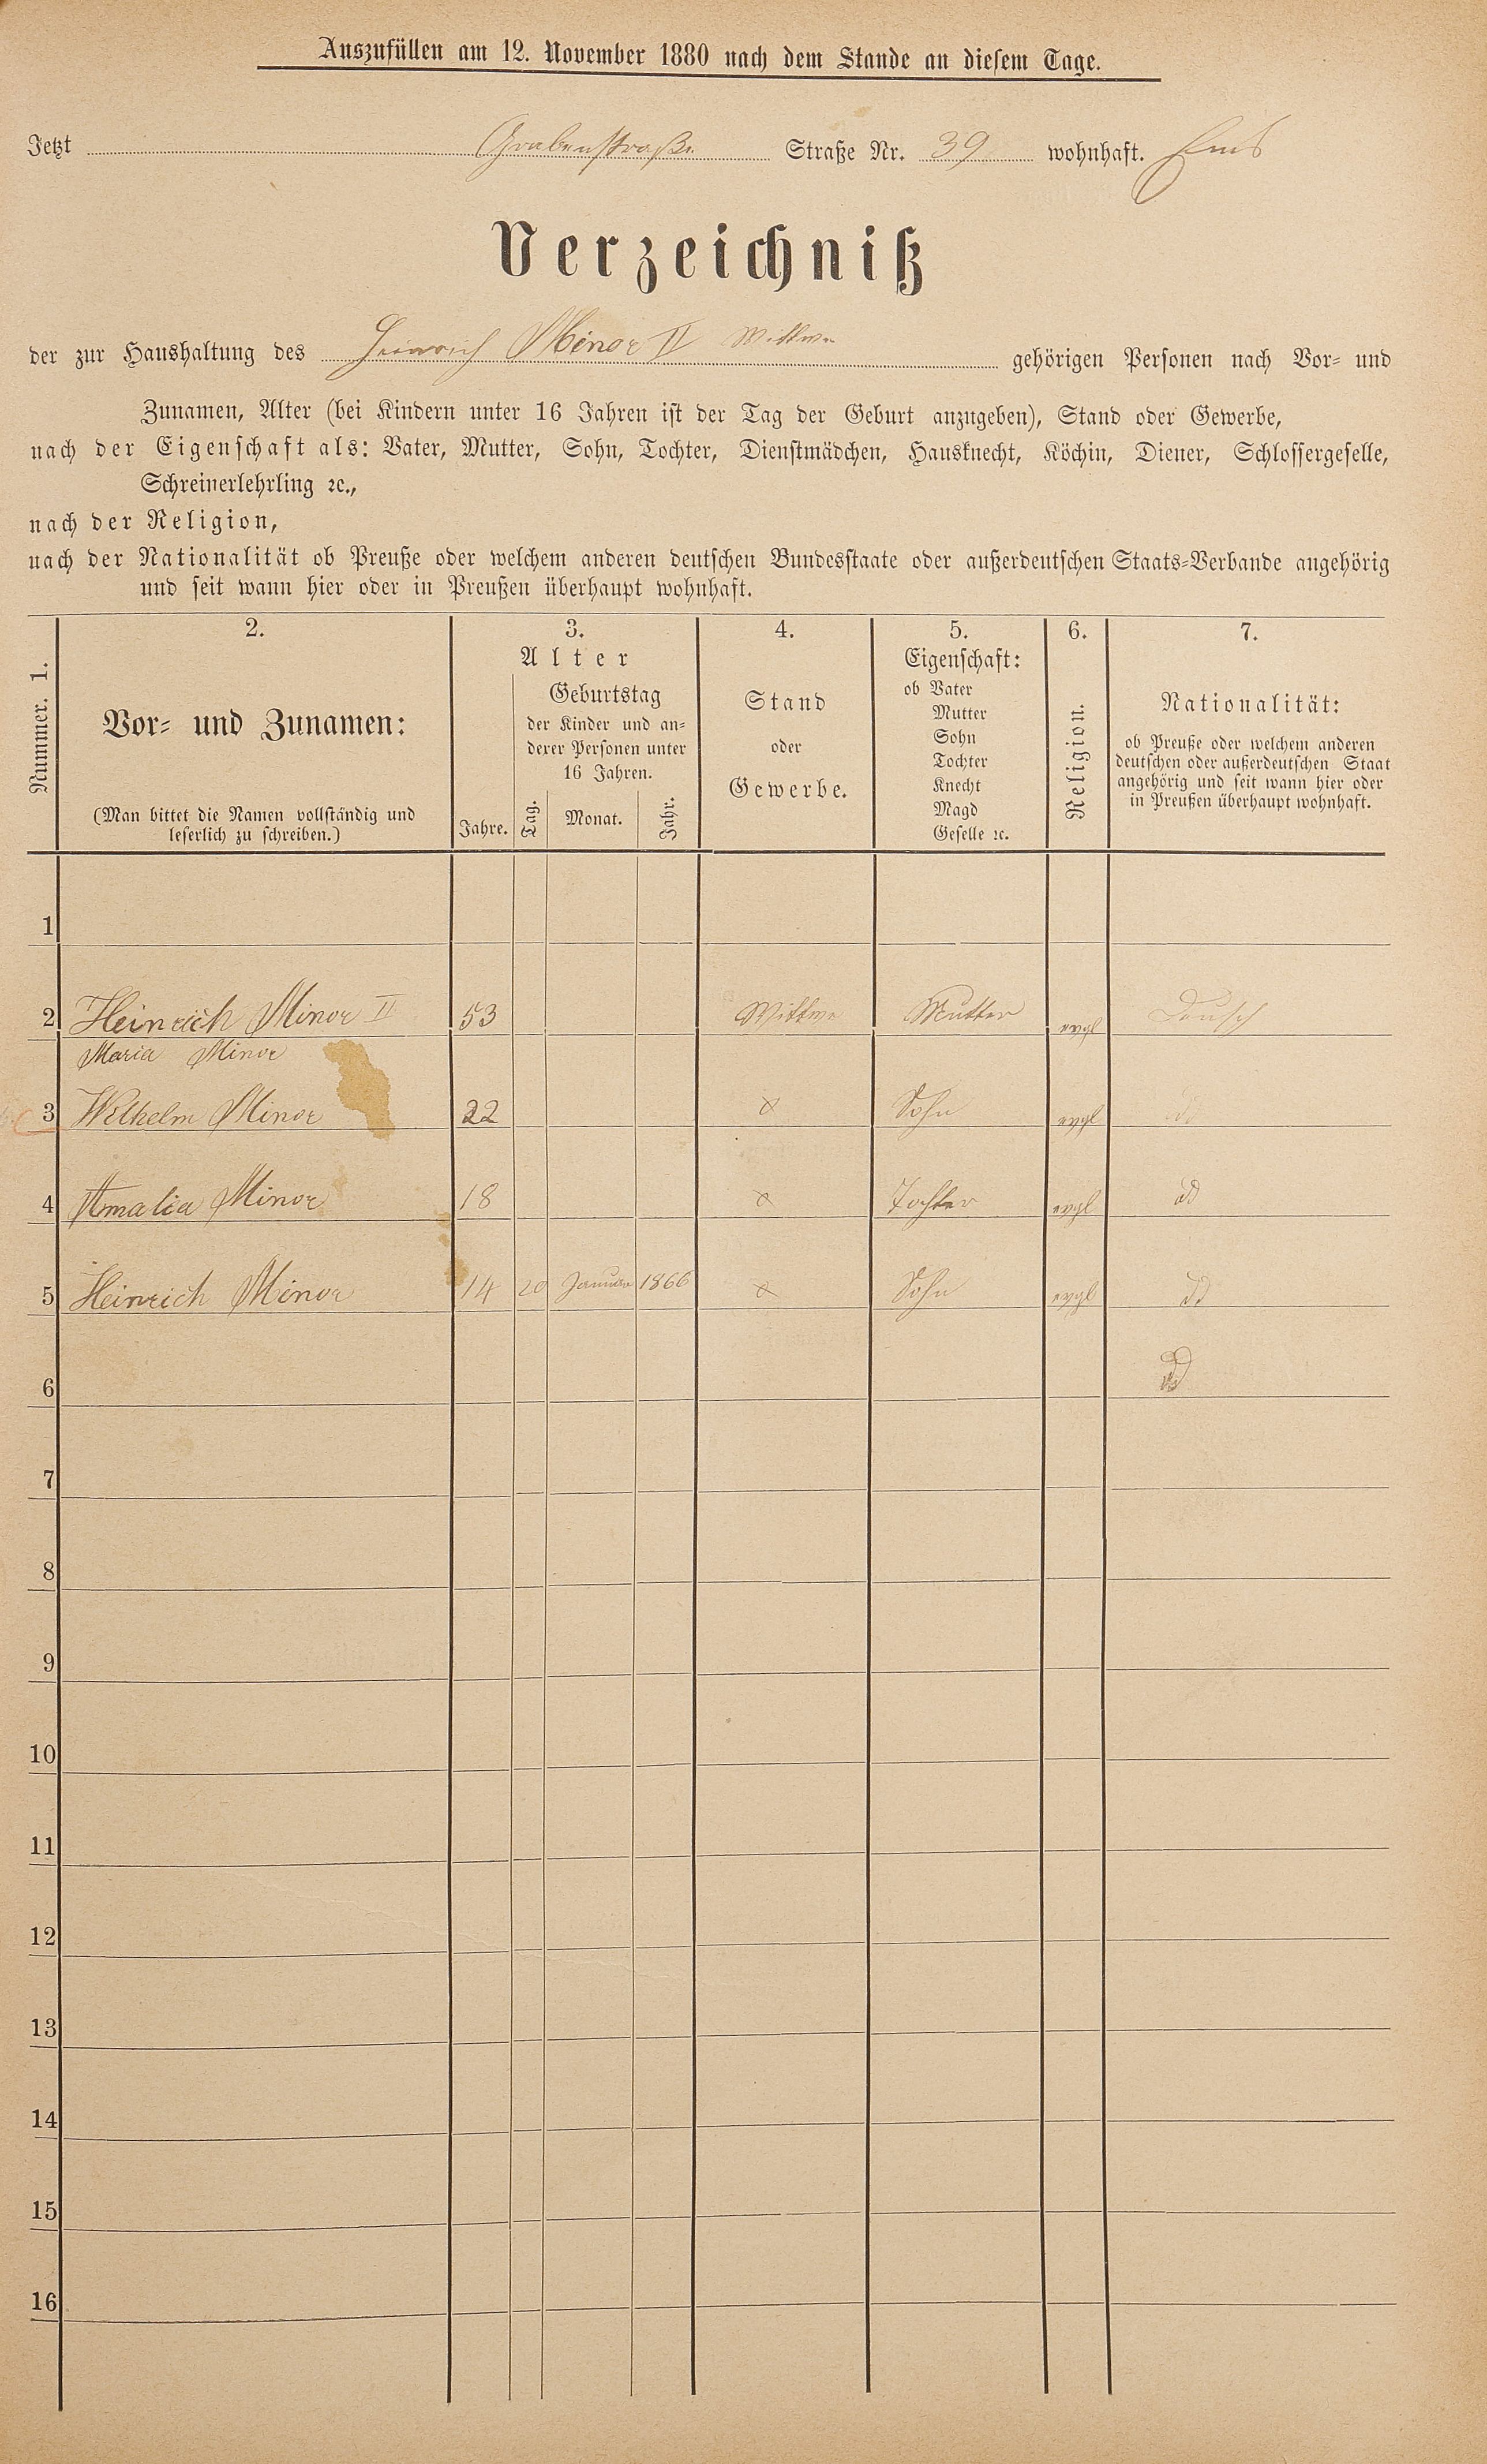 Auszufüllen am 12. November 1880 nach dem Stande an diesem Tage.
Jetzt Grabenstraße Straße Nr. 39 wohnhaft. Ems
Verzeichniß
der zur Haushaltung des Heinrich Minor II Wittwe gehörigen Personen nach Vor- und
Zunamen, Alter (bei Kindern unter 16 Jahren ist der Tag der Geburt anzugeben), Stand oder Gewerbe,
nach der Eigenschaft als: Vater, Mutter, Sohn, Tochter, Dienstmädchen, Hausknecht, Köchin, Diener, Schlossergeselle,
Schreinerlehrling ꝛc.,
nach der Religion,
nach der Nationalität ob Preuße oder welchem anderen deutschen Bundesstaate oder außerdeutschen Staats-Verbande angehörig
und seit wann hier oder in Preußen überhaupt wohnhaft.
Nummer. 1.
2.
Vor- und Zunamen:
(Man bittet die Namen vollständig und
leserlich zu schreiben.)
3.
Alter
Jahre.
Geburtstag
der Kinder und an-
derer Personen unter
16 Jahren.
Tag. Monat. Jahr.
4.
Stand
oder
Gewerbe.
5.
Eigenschaft:
ob Vater
Mutter
Sohn
Tochter
Knecht
Magd
Geselle ꝛc.
6.
Religion.
7.
Nationalität:
ob Preuße oder welchem anderen
deutschen oder außerdeutschen Staat
angehörig und seit wann hier oder
in Preußen überhaupt wohnhaft.
1
2 Heinrich Minor II 53 Wittwe Mutter evgl Deusch
Maria Minor
3 Wilhelm Minor 22 Sohn evgl do
4 Amalia Minor 18 Tochter evgl do
5 Heinrich Minor 14 20 Januar 1866 Sohn evgl do
6
7
8
9
10
11
12
13
14
15
16